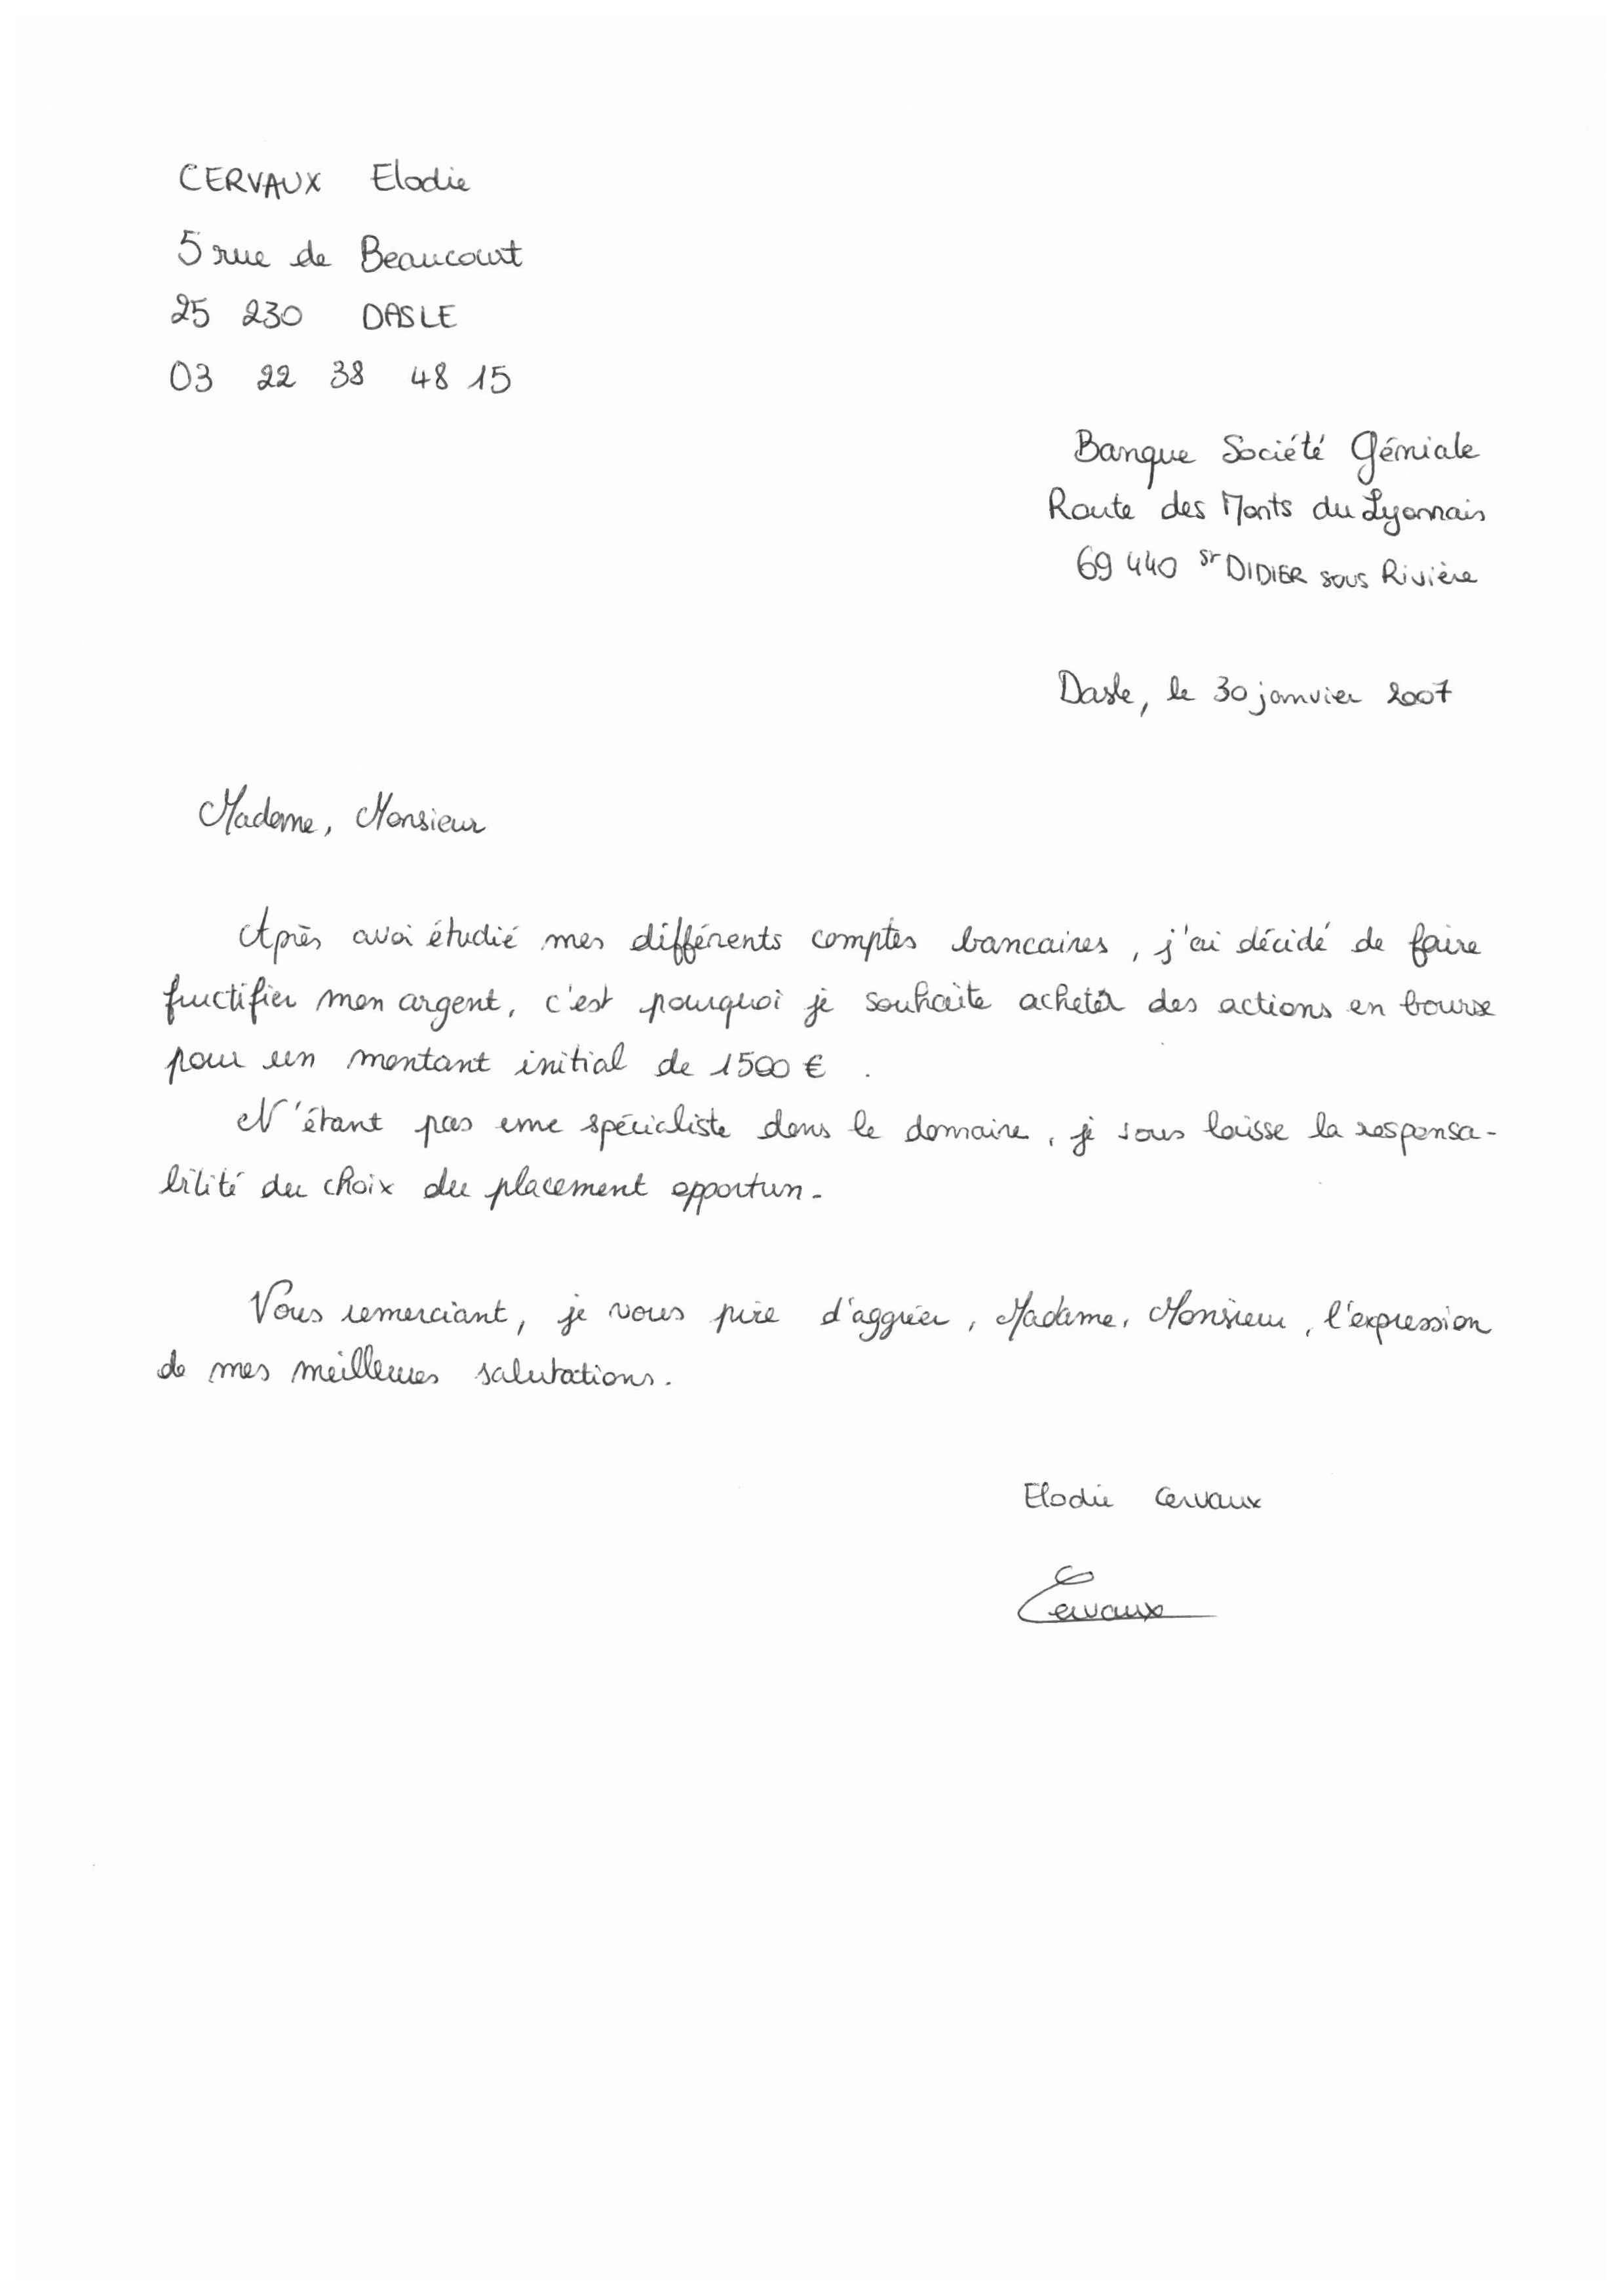 CERVAUX Elodie
5 rue de Beaucourt
25 230 DASLE
03 22 38 48 15
Banque Société Géniale
Route des Monts du Lyonnais
69 440 St DIDIER sous Rivière
Dasle, le 30 janvier 2007
Madame, Monsieur
Après avoi étudié mes différents comptes bancaires, j'ai décidé de faire
fructifier mon argent, c'est pourquoi je souhaite acheter des actions en bourse
pour un montant initial de 1500 €.
N'étant pas une spécialiste dans le domaine, je vous laisse la responsa-
bilité du choix du placement opportun.
Vous remerciant, je vous prie d'aggréer, Madame, Monsieur, l'expression
de mes meilleures salutations.
Elodie Cervaux
Cervaux